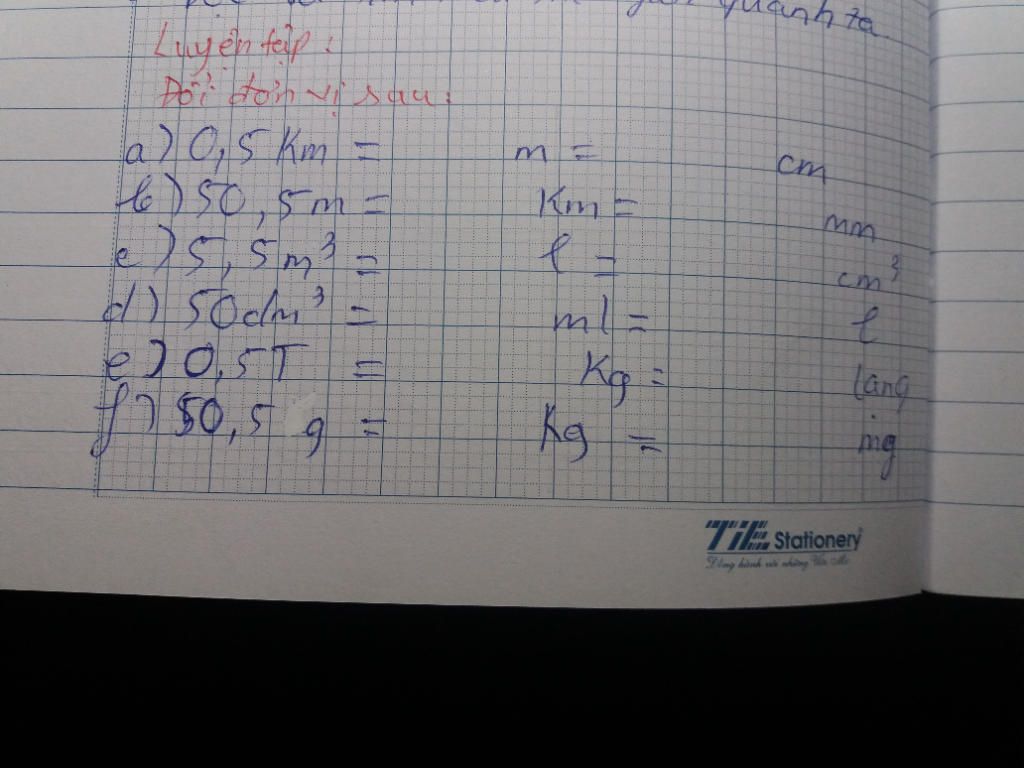 quanh ta
Luyện tập :
Đổi đơn vị sau :
a) 0,5 Km = m = cm
b) 50,5m = Km = mm
c) 5,5m³ = l = cm³
d) 50dm³ = ml = l
e) 0,5T = Kg = lạng
f) 50,5 g = Kg = mg
TiE Stationery